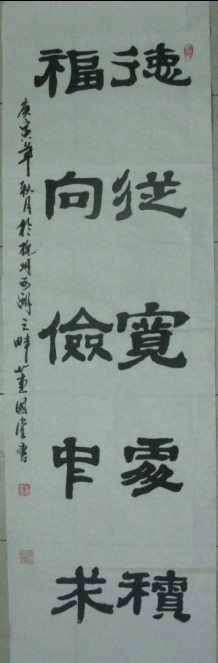 德從寬處積
福向儉中求
庚子年秋月於杭州西湖之畔董國堂書